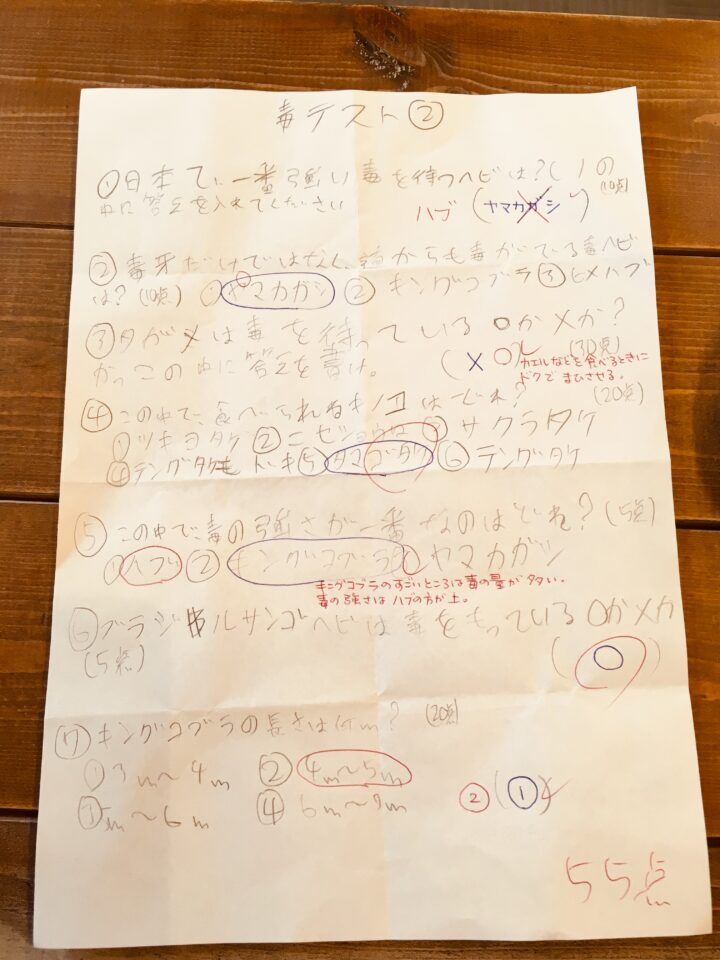 毒テスト②
①日本で、一番強い毒を待つヘビは?( )の
中に答えを入れてください (10点)
ハブ (ヤマカガシ)
②毒牙だけではなく、頭からも毒がでている毒ヘビ
は?(10点) ①ヤマカガシ ②キングコブラ ③ヒメハブ
③タガメは毒を待っている〇か×か?
かっこの中に答えを書け。 (×) 〇 (30点)
カエルなどを食べるときに
ドクでまひさせる。
④この中で、食べられるキノコはどれ? (20点)
①ツキヨタケ ② ③サクラタケ
④テングタケモドキ ⑤タマゴタケ ⑥テングタケ
⑤この中で、毒の強さが一番なのはどれ?(5点)
①ハブ ②キングコブラ ヤマカガシ
キングコブラのすごいところは毒の量が多い。
毒の強さはハブの方が上。
⑥ブラジルサンゴヘビは毒をもっている〇か×か
(5点) (〇)
⑦キングコブラの長さは何m? (20点)
①3m~4m ②4m~5m
③5m~6m ④6m~9m
② (①)
55点